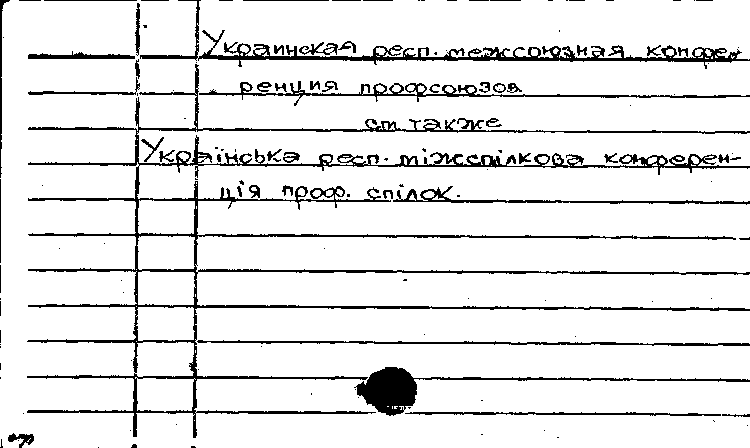 Украинская респ. межсоюзная конфе-
ренция профсоюзов
см. также
Українська респ. міжспілкова конферен-
ція проф. спілок.